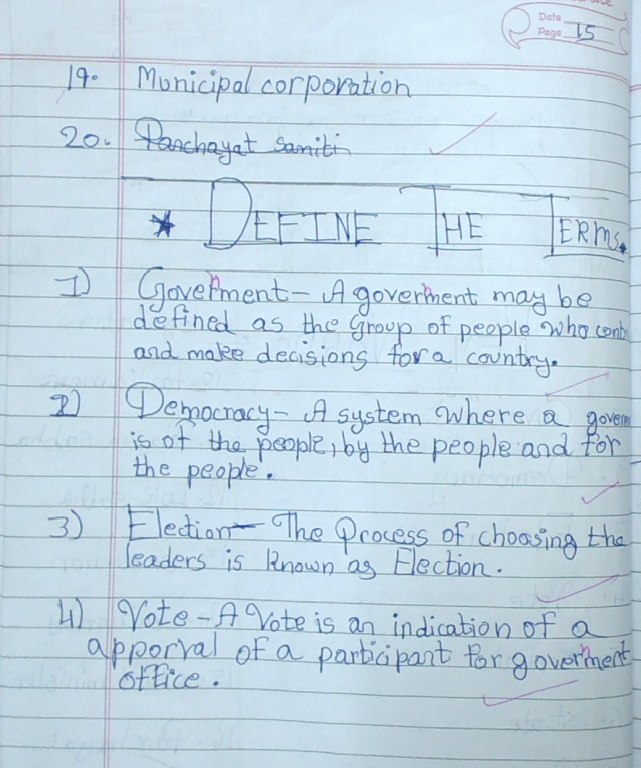 Date
Page 15
19. Municipal corporation
20. Panchayat samiti
* DEFINE THE TERMS.
1) Goverment - A goverment may be
defined as the group of people who cont
and make decisions for a country.
2) Democracy - A system where a govern
is of the people, by the people and for
the people.
3) Election - The process of choosing the
leaders is known as Election.
4) Vote - A Vote is an indication of a
apporval of a participant for goverment
office.